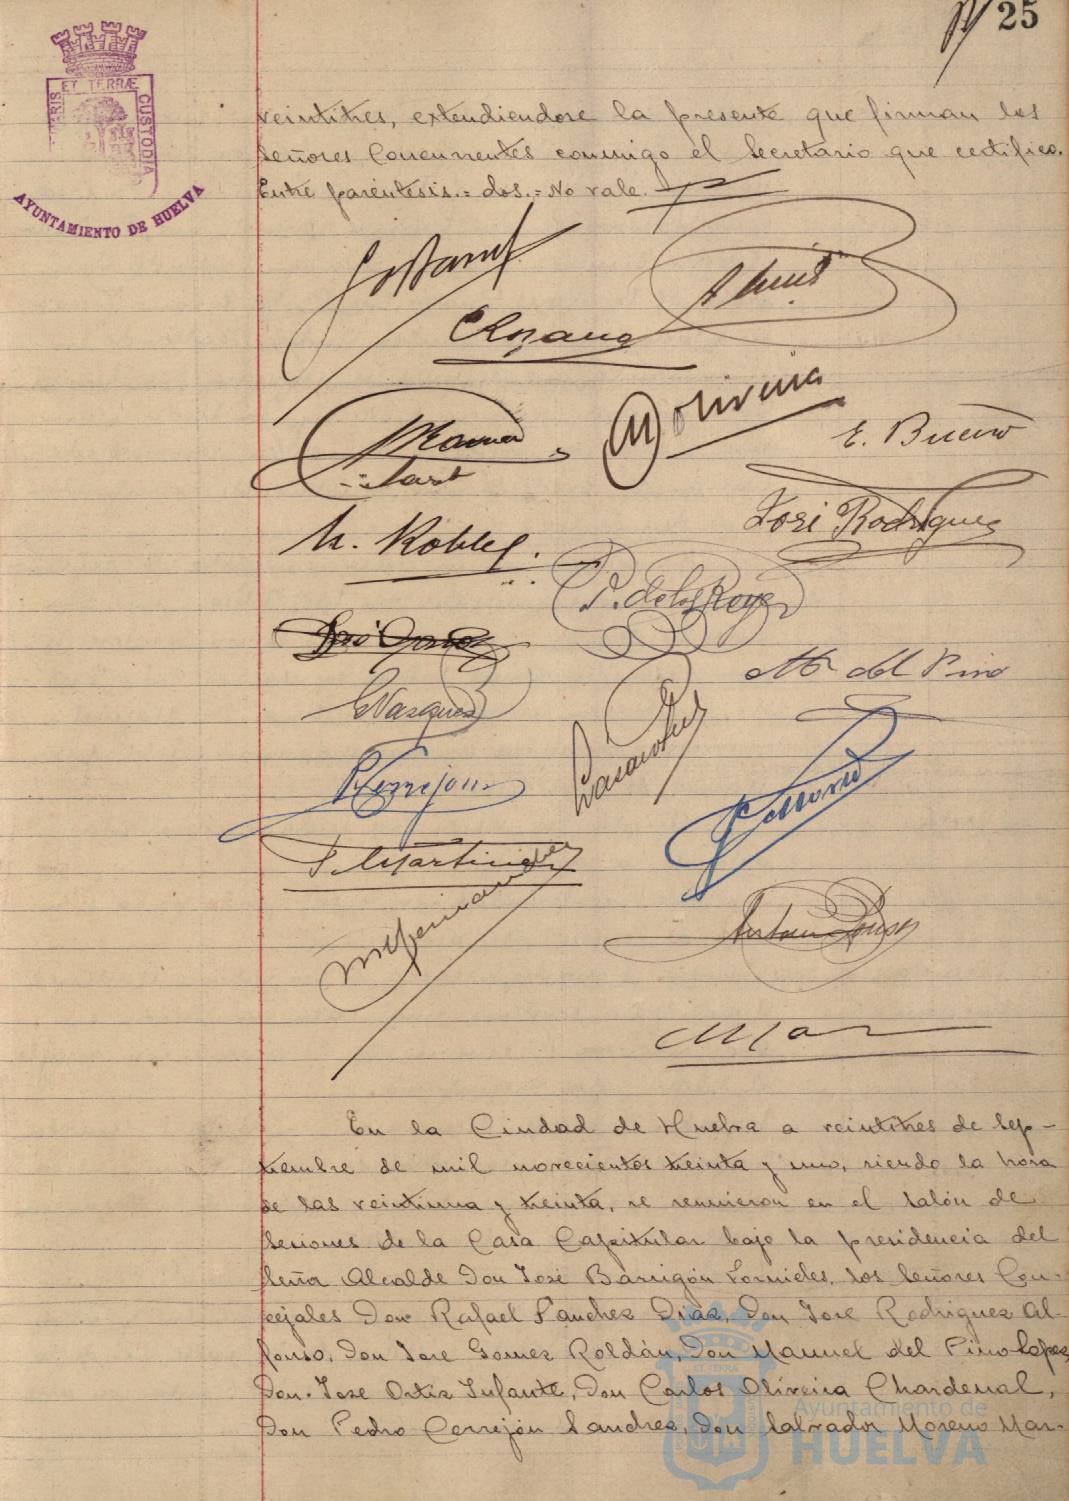 25
ET TERRÆ
CUSTODIA
AYUNTAMIENTO DE HUELVA
veintitres, extendiendose la presente que firman los
señores Concurrentes conmigo el Secretario que certifico.
Entre paréntesis.= dos.= No vale.
Lozano
Oliveira
E. Bueno
José Rodriguez
R. Robles.
P. de los Reyes
José
M. del Pino
Vazquez
P. Cerrejon
S. Moreno
F. Martinez
Antonio
En la Ciudad de Huelva a veintitres de Sep-
tiembre de mil novecientos treinta y uno, siendo la hora
de las veintiuna y treinta, se reunieron en el salón de
Sesiones de la Casa Capitular bajo la presidencia del
Señor Alcalde Don José Barrigón Fornieles, los Señores Con-
cejales Don Rafael Sanchez Diaz, Don Jose Rodriguez Al-
fonso, Don Jose Gomez Roldán, Don Manuel del Pino Lopez,
Don Jose Ortiz Infante, Don Carlos Oliveira Chardenal,
Don Pedro Cerrejón Sanchez, Don Salvador Moreno Mar-
Ayuntamiento de
HUELVA